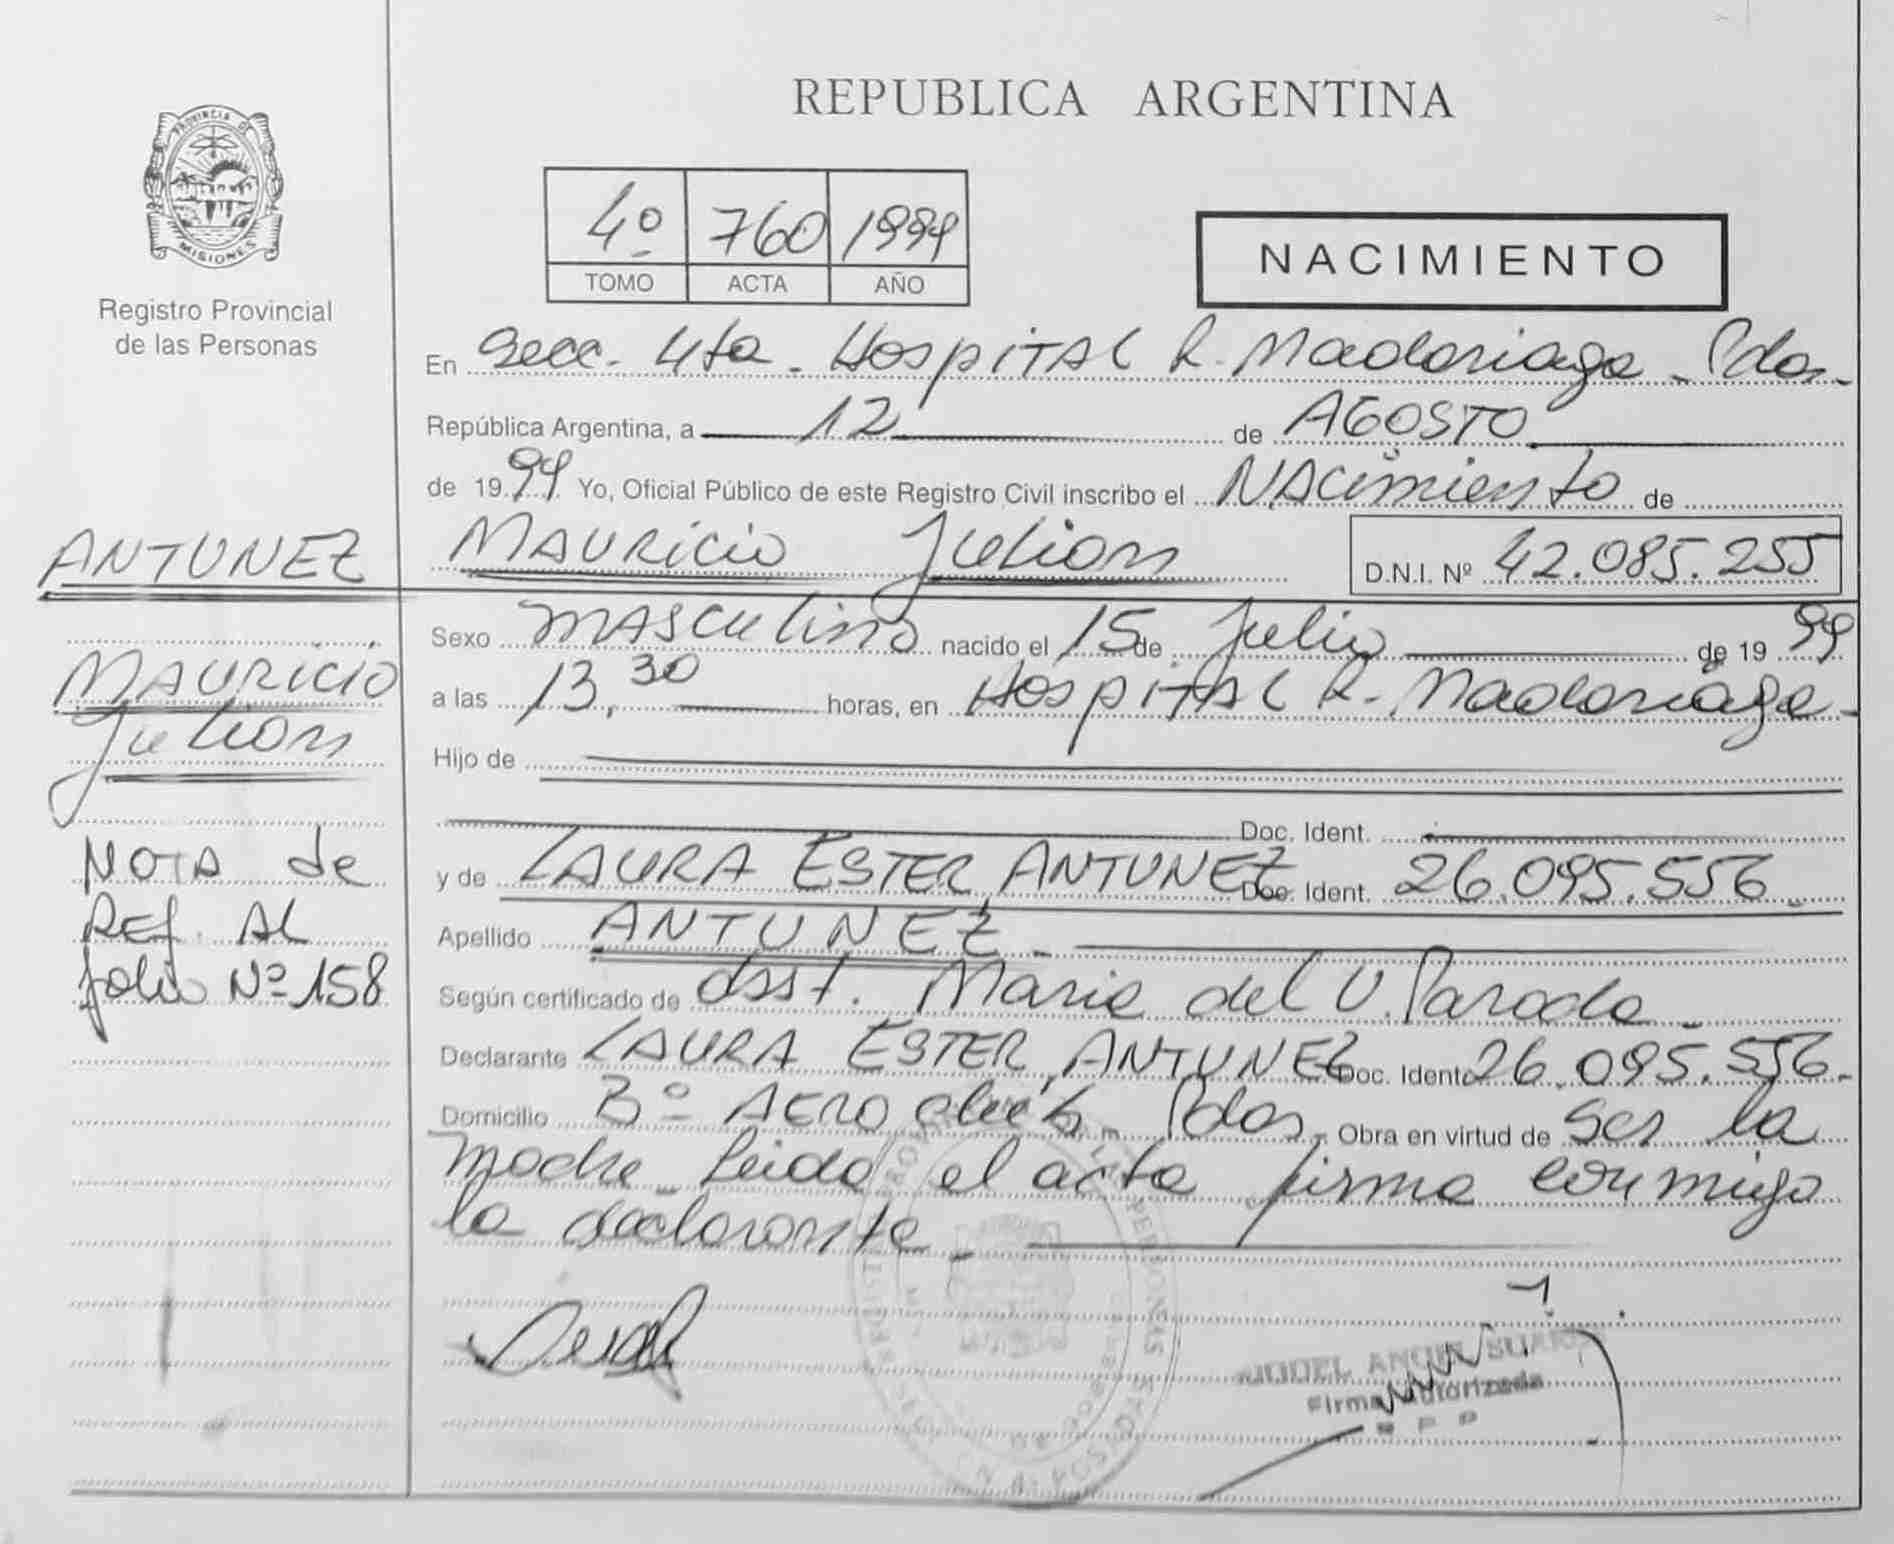 REPUBLICA ARGENTINA
PROVINCIA DE
MISIONES
Registro Provincial
de las Personas
4º 760 1999
TOMO ACTA AÑO
NACIMIENTO
En Secc. 4ta. Hospital R. Madariaga - Pdas.
República Argentina, a 12 de AGOSTO
de 1999 Yo, Oficial Público de este Registro Civil inscribo el NACimiento de
ANTUNEZ MAURICIO Julian D.N.I. Nº 42.085.255
Sexo MASCULINO nacido el 15 de Julio de 1999
MAURICIO
Julian
a las 13,30 horas, en Hospital R. Madariaga -
Hijo de
Doc. Ident.
NOTA de
REF. AL
folio Nº 158
y de LAURA ESTER ANTUNEZ Doc. Ident. 26.095.556
Apellido ANTUNEZ -
Según certificado de obst. Maria del V. Parada -
Declarante LAURA ESTER ANTUNEZ Doc. Ident. 26.095.556.-
Domicilio Bº AERO club - Pdas.- Obra en virtud de ser la
madre - Leida el acta firma conmigo
la declarante -
ANGEL SUAREZ
Firma Autorizada
R P P